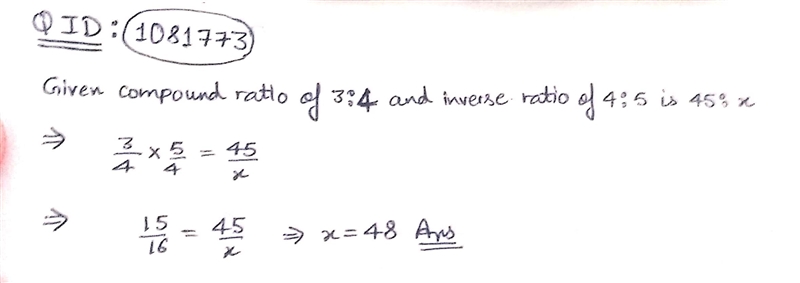 QID: 1081773
Given compound ratio of 3:4 and inverse ratio of 4:5 is 45: x
⇒ 3/4 × 5/4 = 45/x
⇒ 15/16 = 45/x ⇒ x = 48 Ans